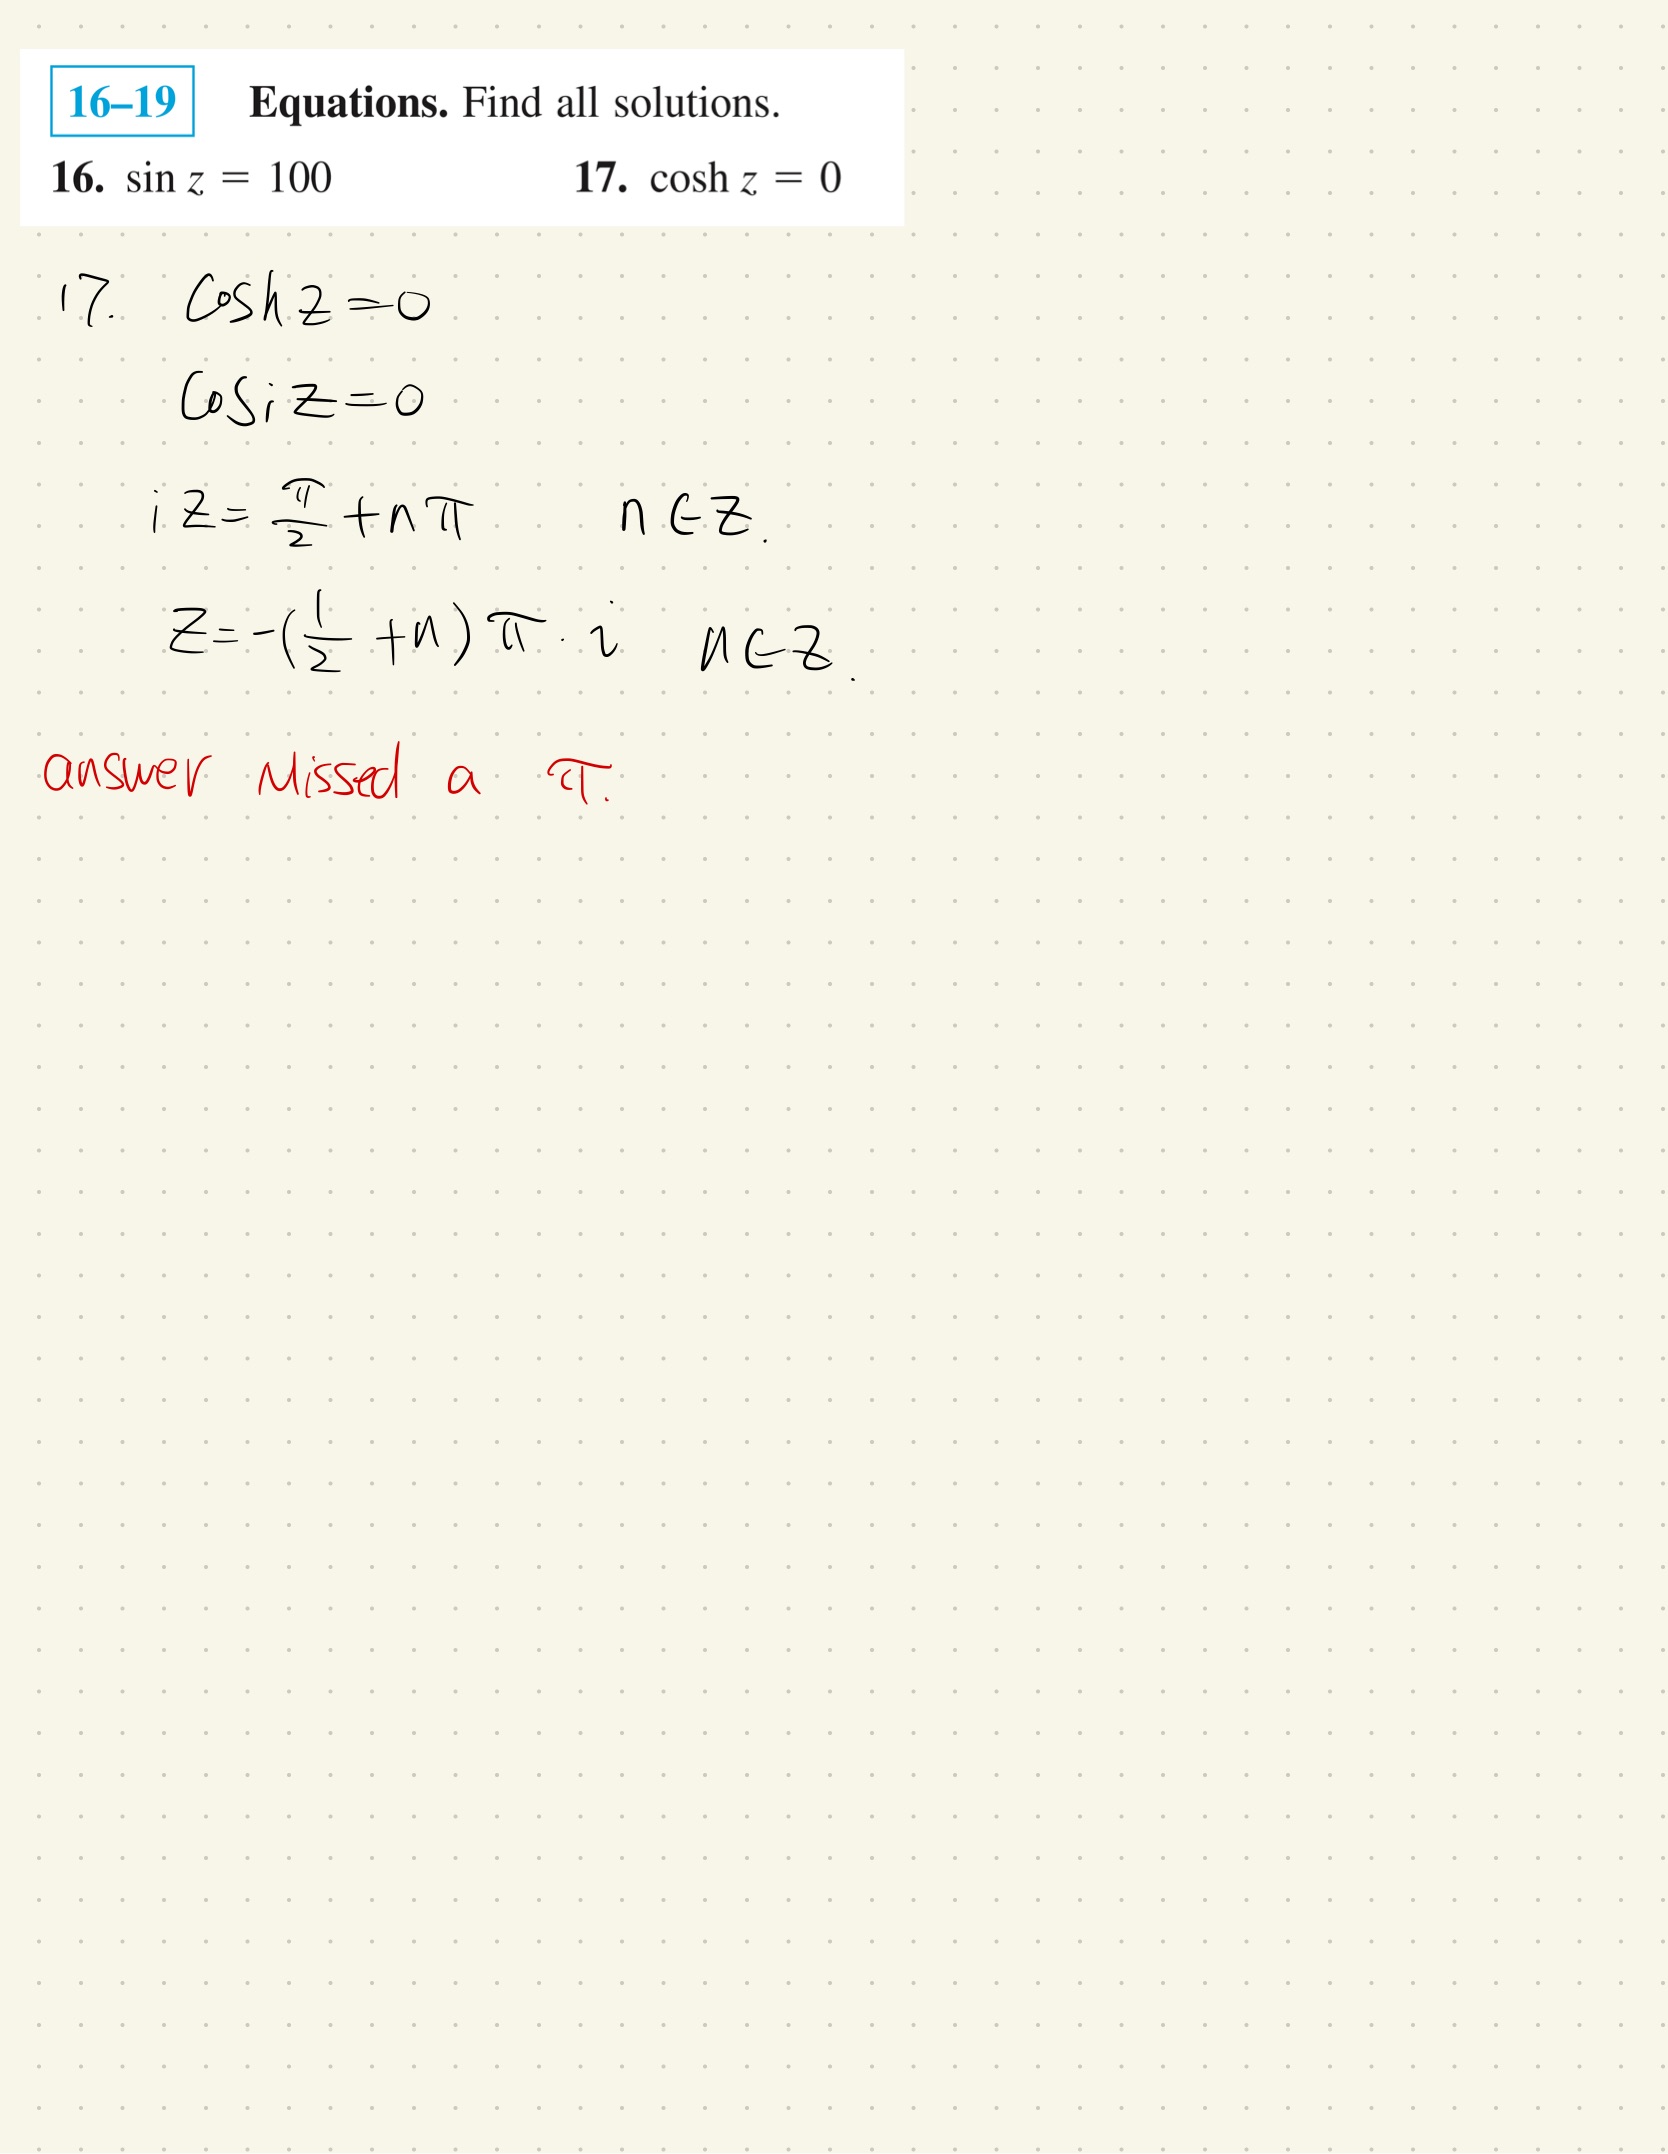 16–19 Equations. Find all solutions.
16. sin z = 100 17. cosh z = 0
17. cosh z = 0
cos i z = 0
i z = π/2 + n π n ∈ Z.
z = -(1/2 + n) π · i n ∈ Z.
answer missed a π.